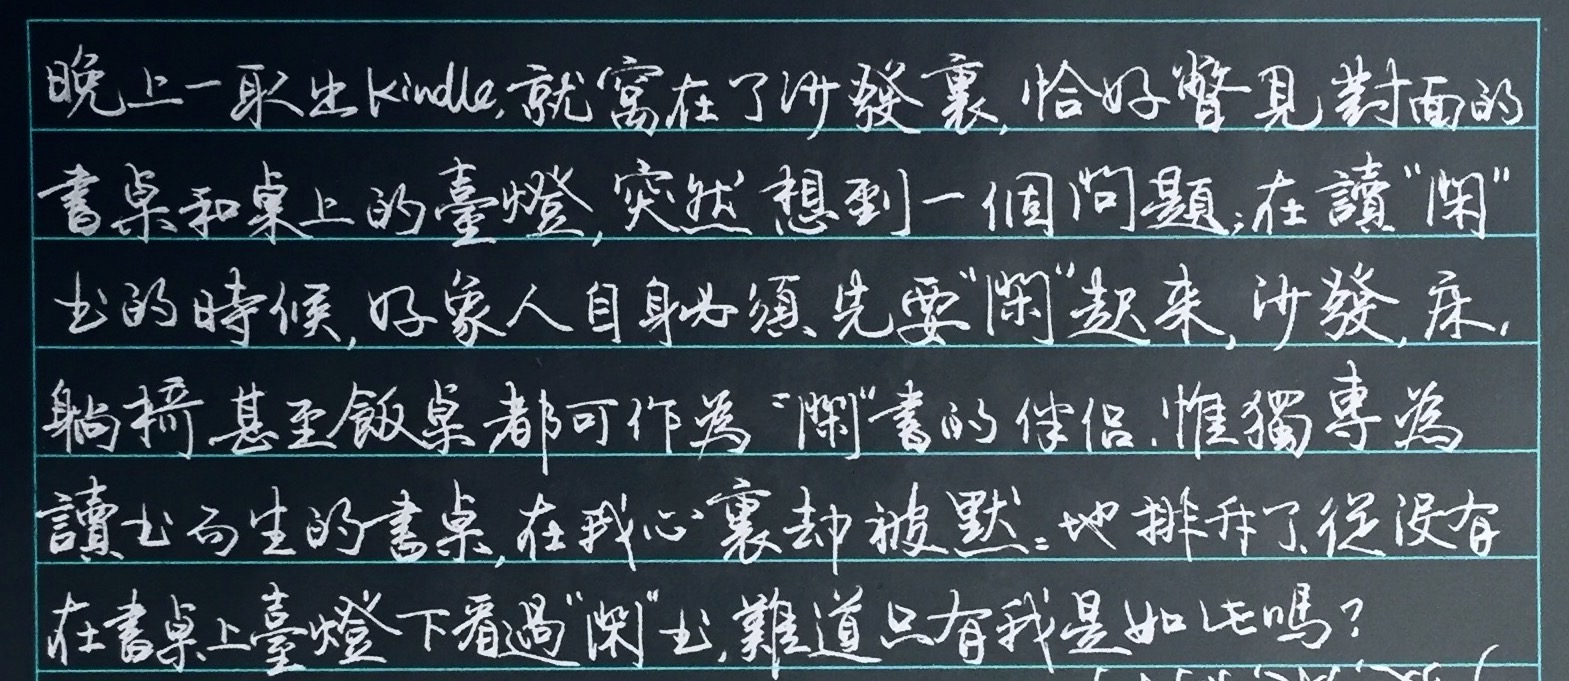 晚上一取出kindle,就窩在了沙發裏,恰好瞥見對面的
書桌和桌上的臺燈,突然想到一個問題:在讀"閑"
书的時候,好象人自身必須先要"閑"起來,沙發,床,
躺椅甚至飯桌都可作為"閑"書的伴侶.惟獨專為
讀书而生的書桌,在我心裏却被默=地排斥了.從没有
在書桌上臺燈下看過"閑"书,難道只有我是如此嗎?